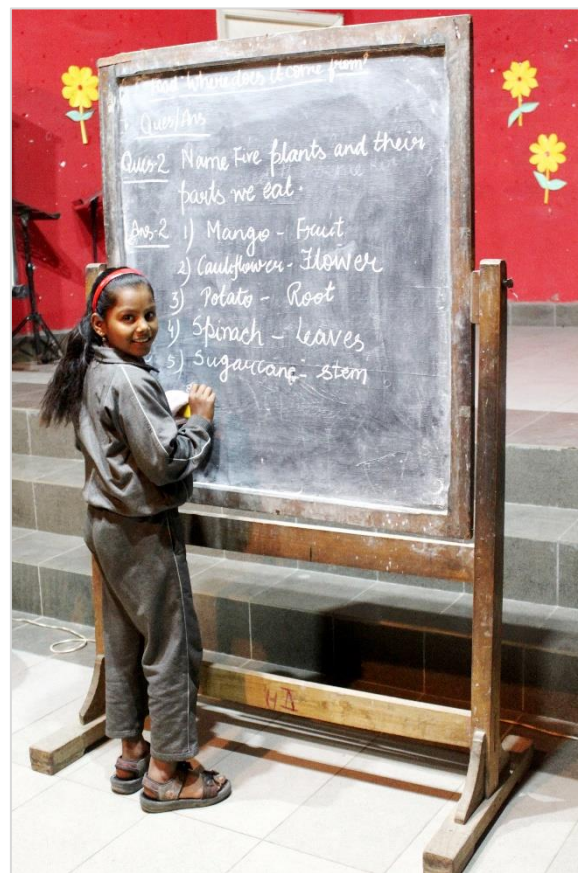 Food Where does it come from?
Ques/Ans
Ques-2 Name Five plants and their
parts we eat.
Ans-2 1) Mango - Fruit
2) Cauliflower - Flower
3) Potato - Root
4) Spinach - Leaves
5) Sugarcane - stem
VA